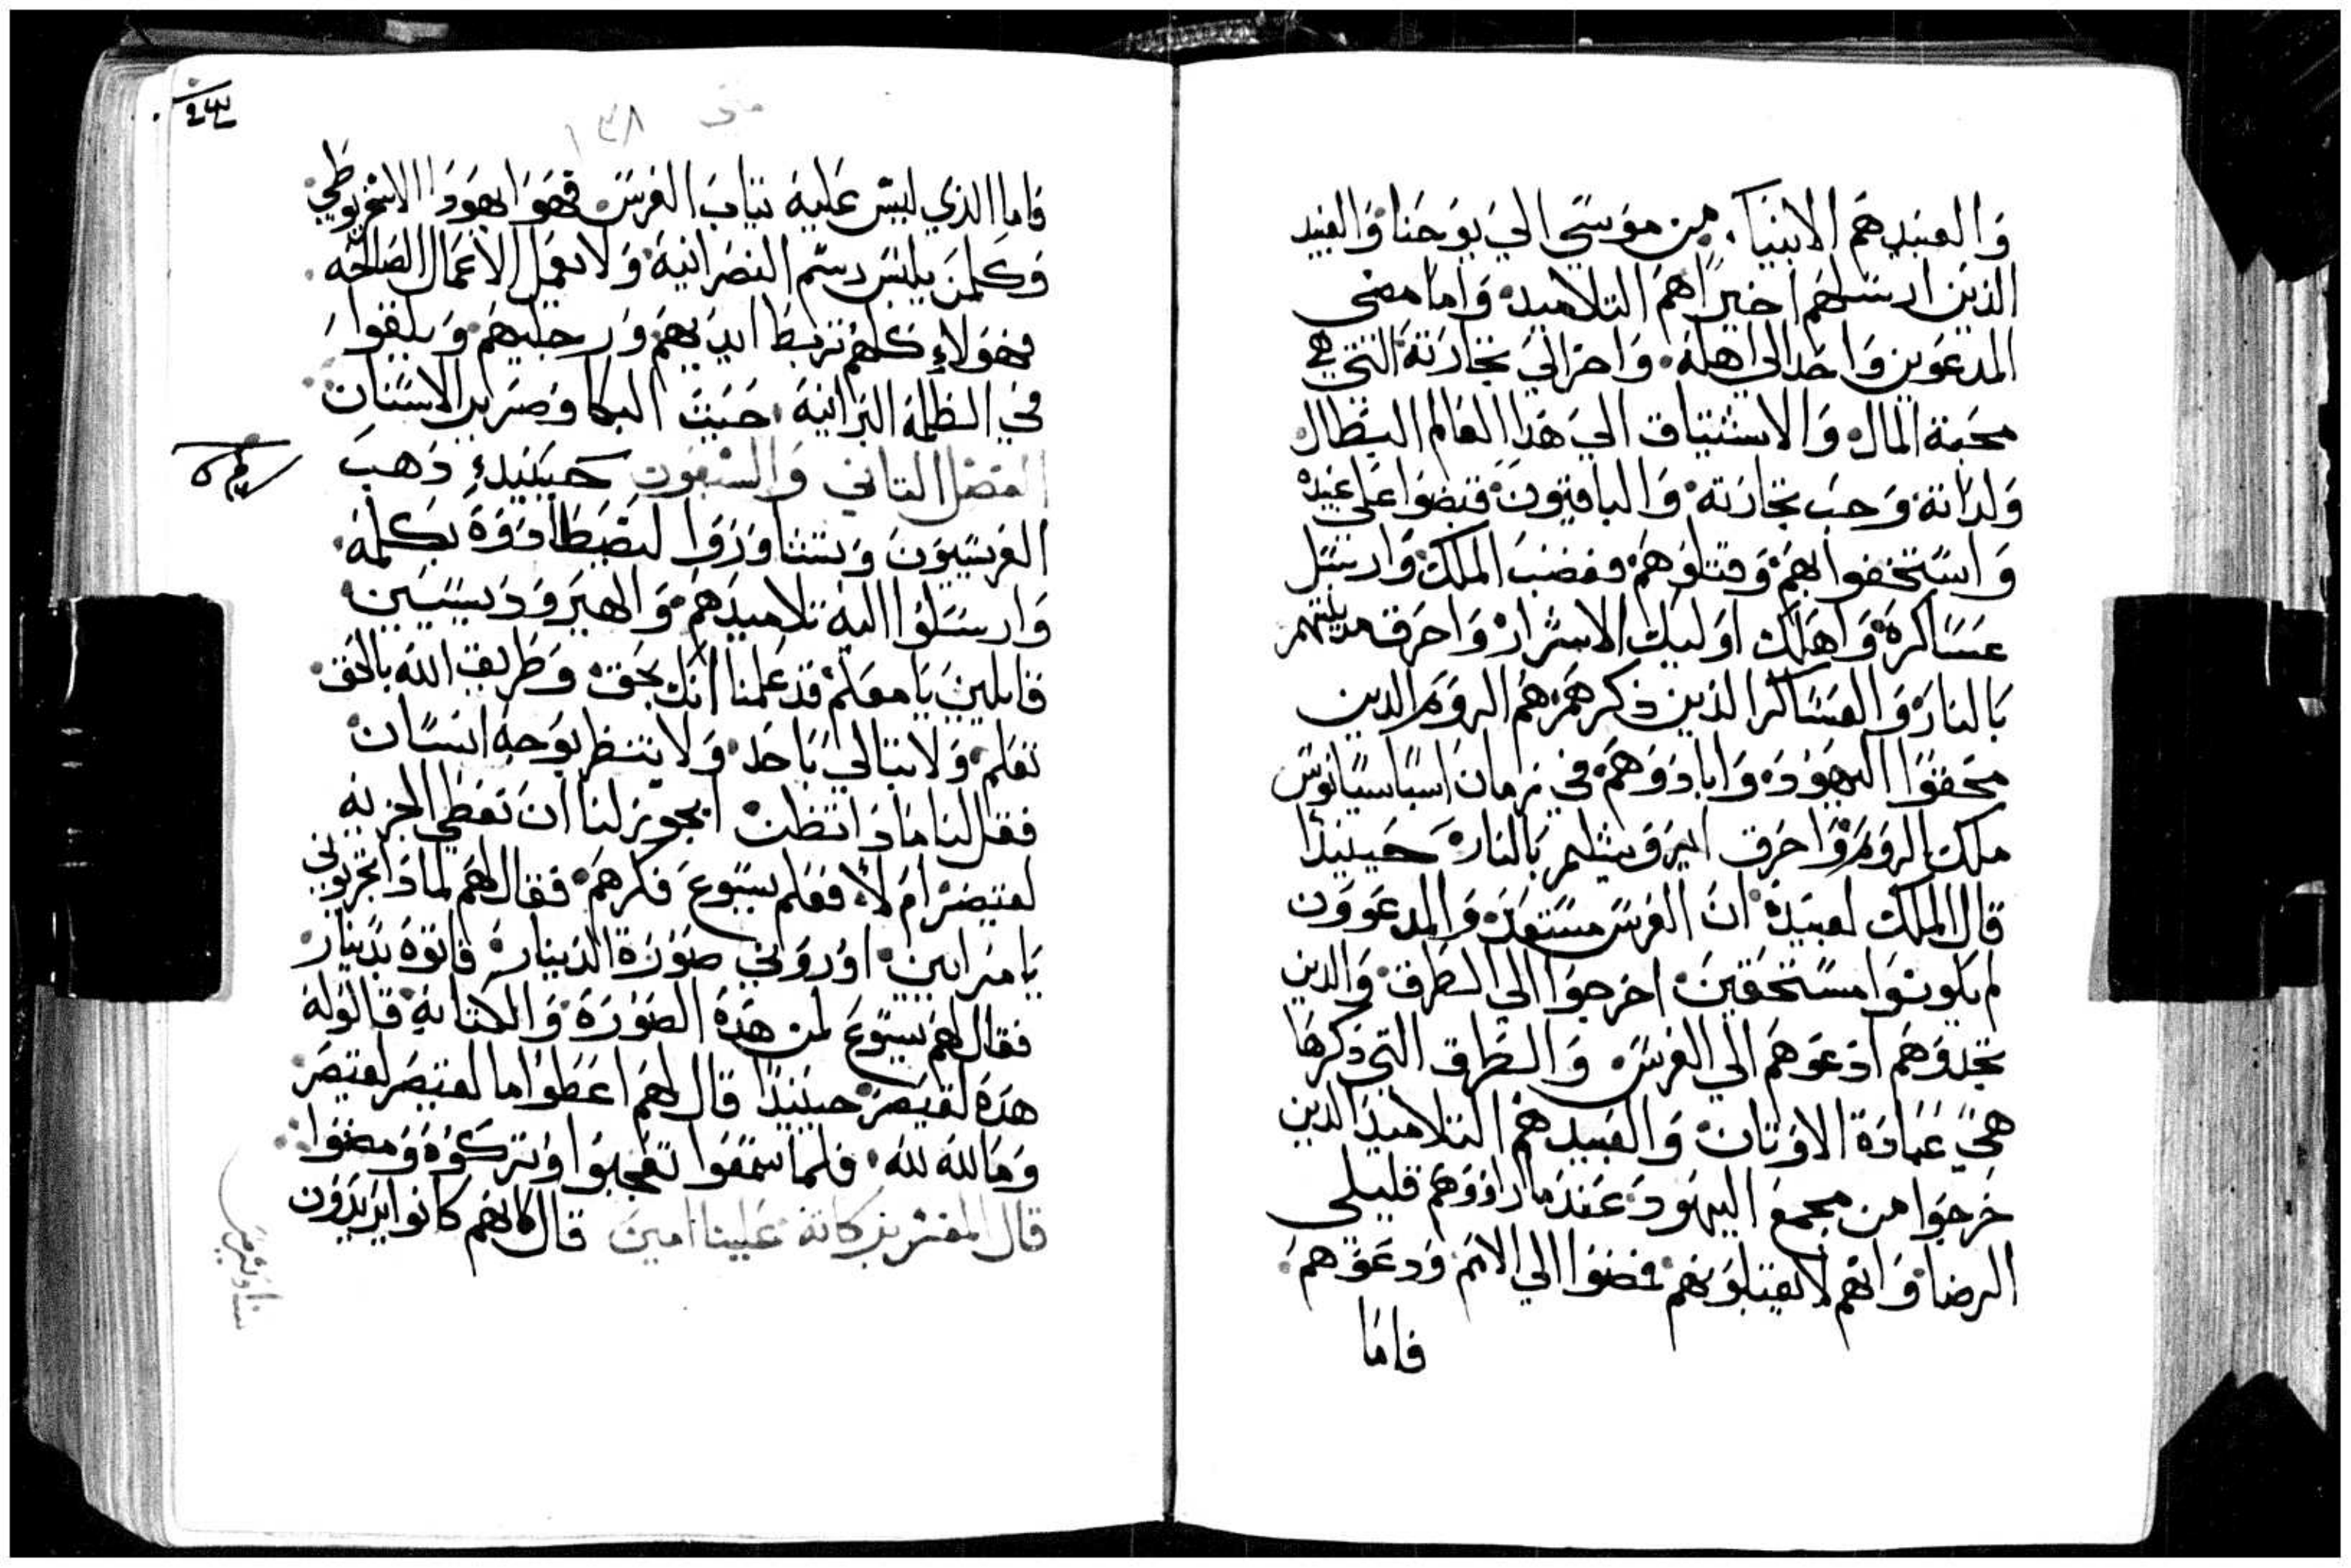 والعبيد هم الانبيا. من موسي الي يوحنا والعبيد
الذين ارسلهم اخيرا هم التلاميد واما مضي
المدعوين واحد الي اهله. واخر الي تجارته التي هي
محبة المال والاشتياق الي هدا العالم البطال
ولداته وحب تجارته والباقيون قبضوا علي عبيده
واستخفوا بهم وقتلوهم فغضب الملك وارسل
عساكره واهلك اوليك الاشرار واحرق مدينتهم
بالنار والعساكر الذين ذكرهم هم الروم الدين
محقوا اليهود وابادوهم في زمان اسباسيانوس
ملك الروم واحرق ايروشليم بالنار حينيدا
قال الملك لعبيده ان العرس مستعد والمدعوون
لم يكونوا مستحقين اخرجوا الي الطرق والدين
تجدوهم ادعوهم الي العرس والطرق التي ذكرها
هي عبادة الاوتان والعبيد هم التلاميد الدين
خرجوا من مجمع اليهود عند ما راووهم قليلي
الرضا وانهم لا يقبلونهم فمضوا الي الامم ودعوهم
فاما
متي ١٣٨
فاما الذي ليس عليه تياب العرس فهو ايهودا الاسخريوطي
وكلمن يلبس رسم النصرانيه ولا يعمل الاعمال الصالحه.
فهولاء كلهم تربط ايديهم ورجليهم ويلقوا
في الظلمه البرانيه حيت البكا وصرير الاسنان
الفصل التاني والسبعون حينيدء دهب
الفريسيون وتشاوروا ليصطادوه بكلمه.
وارسلوا اليه تلاميدهم والهيرودسيين
قايلين يا معلم قد علمنا انك بحق وطريق الله بالحق
تعلم ولا تبالي باحد ولا تنظر بوجه انسان
فقل لنا مادا تظن ايجوز لنا ان نعطي الجزيه
لقيصر ام لا فعلم يسوع فكرهم فقال لهم لمادا تجربوني
يا مرايين اوروني صورة الدينار فاتوه بدينار
فقال لهم يسوع لمن هده الصوره والكتابه قالو له
هده لقيصر حينيدا قال لهم اعطوا ما لقيصر لقيصر
وما لله لله فلما سمعوا تعجبوا وتركوه ومضوا
قال المفسر بركاته علينا امين قال كانهم كانوا يريدون